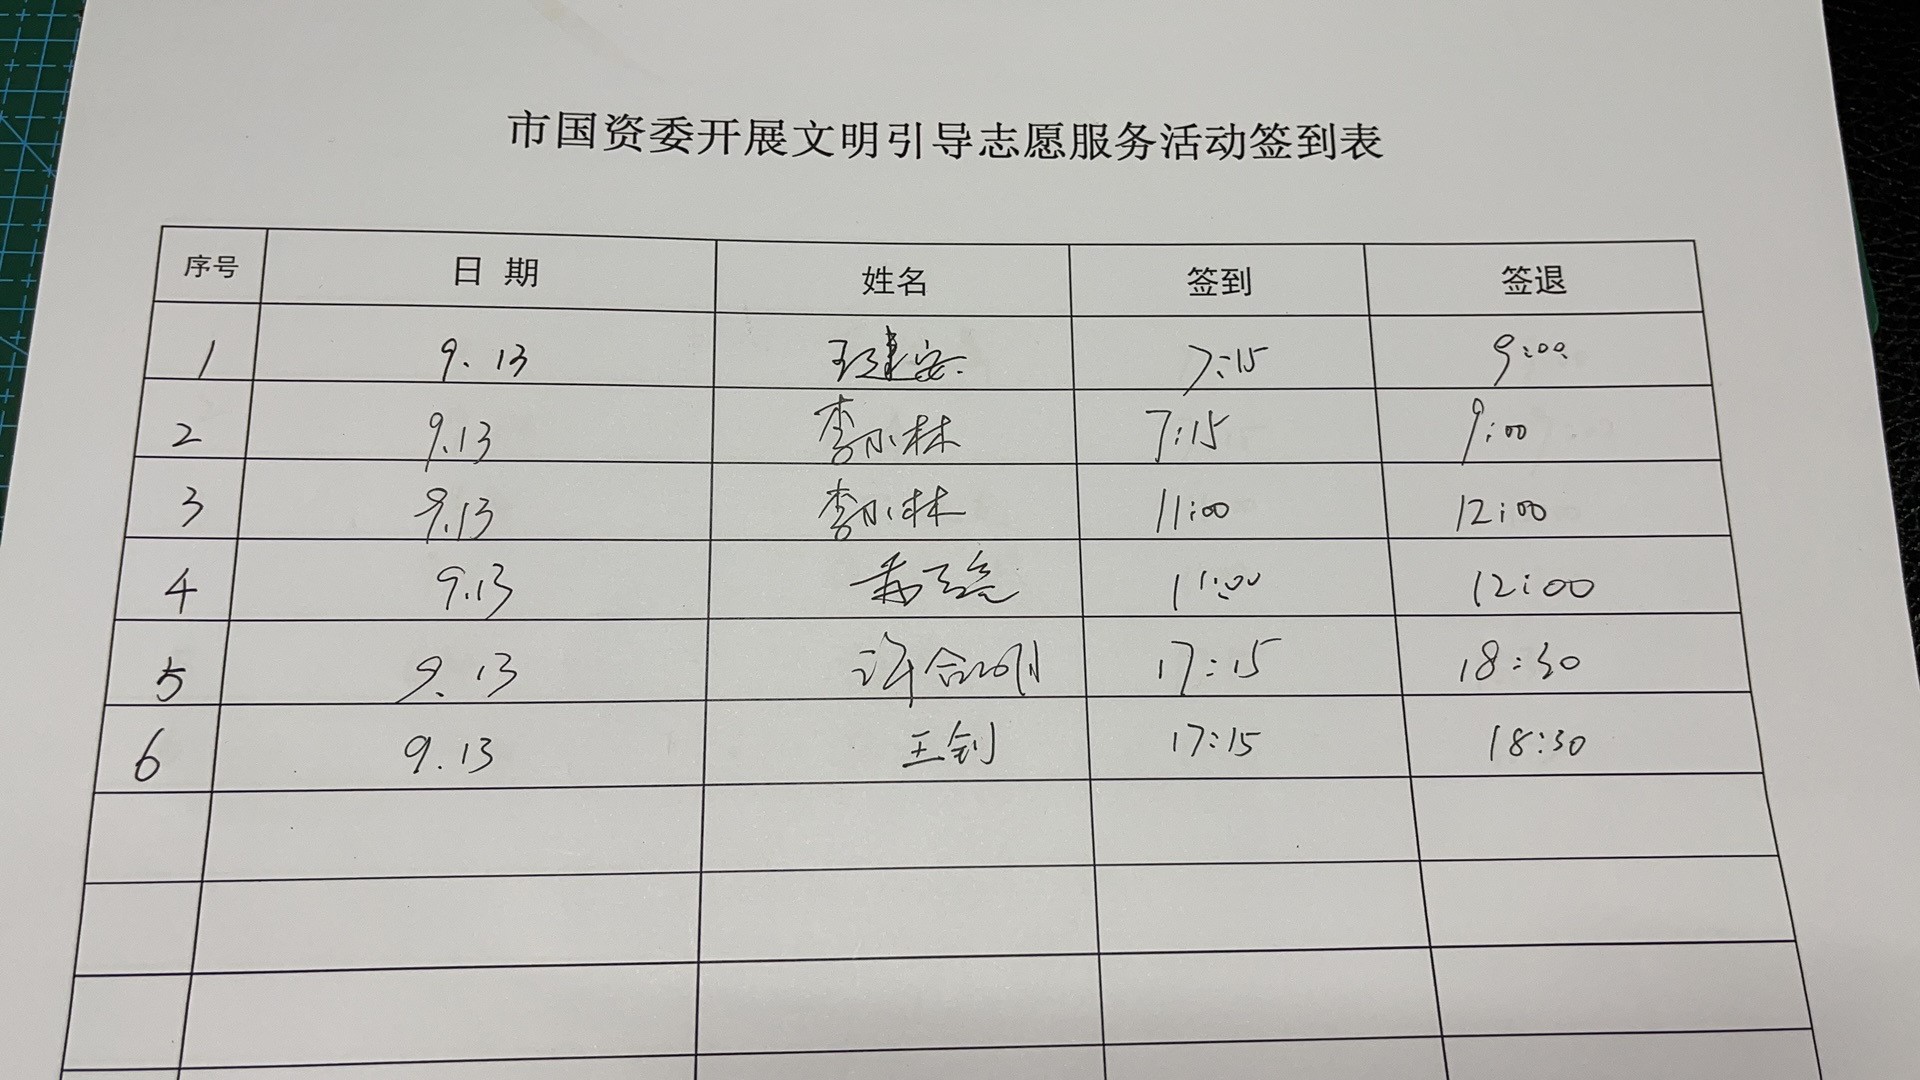 市国资委开展文明引导志愿服务活动签到表
序号 日期 姓名 签到 签退
1 9.13 王建安 7:15 9:00
2 9.13 李小林 7:15 9:00
3 9.13 李小林 11:00 12:00
4 9.13 11:00 12:00
5 9.13 许合明 17:15 18:30
6 9.13 王钊 17:15 18:30